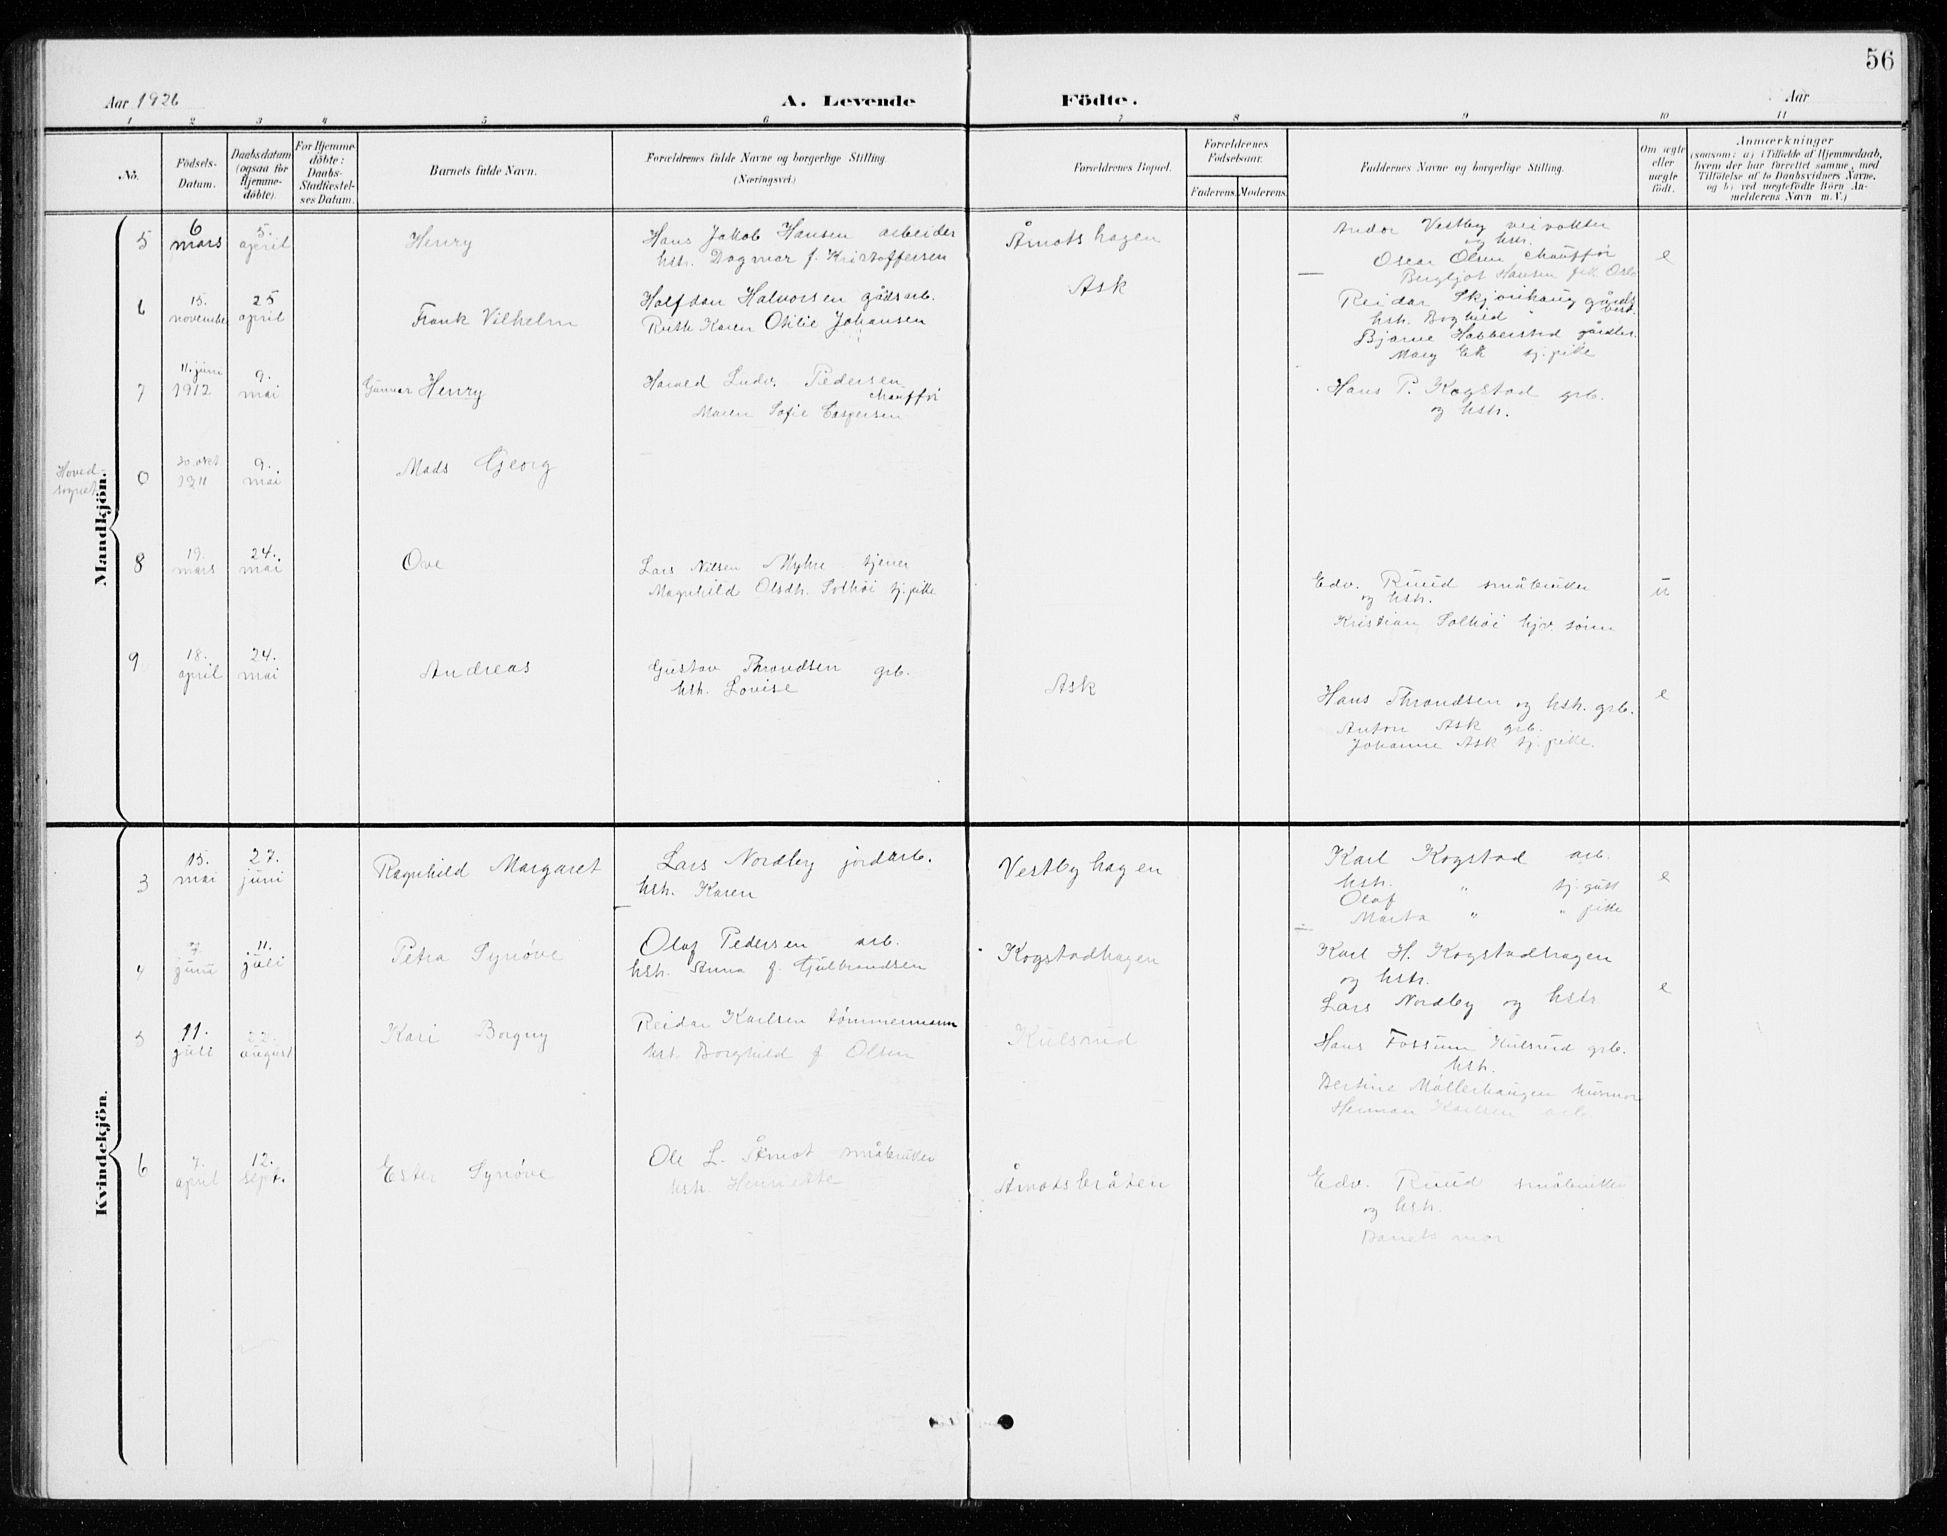 56
Aar 1926
A. Levende Födte.
Aar
1 2 3 4 5 6 7 8 9 10 11
No.
Födsels-Datum.
Daabsdatum (ogsaa for Hjemme-døbte).
For Hjemme-døbte: Daabs-Stadfæstel-ses Datum.
Barnets fulde Navn.
Forældrenes fulde Navne og borgerlige Stilling (Næringsvei.)
Forældrenes Bopæl.
Forældrenes Födselsaar.
Faderens. Moderens.
Faddernes Navne og borgerlige Stilling.
Om ægte eller uægte født.
Anmærkninger
(saasom: a) i Tilfælde af Hjemmedaab, hvem der har forrettet samme, med Tilföielse af to Daabsvidners Navne. og b) ved uægtefødte Börn An-melderens Navn m. V.)
Mandkjön.
5 6 mars 5. april Henry
Hans Jakob Hansen arbeider
hstr. Dagmar f. Kristoffersen
Åmotshagen
Andor Vestby veivokter
og hstr.
Oscar Olsen chauffør
Bergljot Hansen frk. Oslo
e
6 15. november 25 april Frank Vilhelm
Halfdan Halvorsen gårdsarb.
Ruth Karen Otilie Johansen
Ask
Reidar Skjønhaug gårds
hstr. Borghild "
Bjarne Habberstad
Mary Ek tj.pike
7 11. juni 1912 9. mai Gunnar Henry
Harald Ludv. Pedersen
chauffør
Maren Sofie Caspersen
Hans P. Kogstad grb.
og hstr.
Hoved-sognet
0 20. okt 1911 9. mai Mads Georg
8 19. mars 24. mai Ove
Lars Nilsen Myhre tjener
Magnhild Olsdtr. Solhøi tj.pike
Edv. Ruud småbruker
og hstr.
Kristian Solhøi hjv. sønn
u
9 18. april 24. mai Andreas
Gustav Throndsen grb.
hstr. Lovise
Ask
Hans Throndsen og hstr. grb.
Anton Ask grb.
Johanne Ask tj.pike.
e
Kvindekjön.
3 15. mai 27. juni Ragnhild Margaret
Lars Nordby jordarb.
hstr. Karen
Vestbyhagen
Karl Kogstad arb.
hstr.
Olaf " tj.gutt
Marta " " pike
e
4 7 juni 11. juli Petra Synøve
Olaf Pedersen arb.
hstr. Anna f. Gulbrandsen
Kogstadhagen
Karl H. Kogstadhagen
og hstr.
Lars Nordby og hstr
e
5 11. juli 22. august Kari Borgny
Reidar Karlsen tømmermann
hst. Borghild f Olsen
Kulsrud
Hans Fossum Kulsrud grb.
hstr.
Bertine Møllerhaugen husmor
Herman Karlsen arb.
6 7. april 12. sept. Ester Synøve
Ole L. Åmot småbruker
hstr. Henriette
Åmotsbråten
Edv. Ruud småbruker
og hstr.
Barnets mor